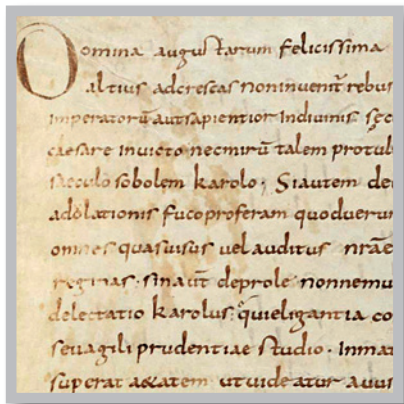 Domina augustarum felicissima
altius adcrescas non inveniт̄ rebus
imperatorū aut sapientior indivinis sęc
caesare invicto nec mirū talem protul
saeculo sobolem karolo; Si autem de
adolationis fuco proferam quod verum
omnes quas visus vel auditus nr̄ae
reginas. sin aut̄ de prole non nemu
delectatio karolus qui eligantia co
seu agili prudentiae studio. Inma
superat aetatem ut videatur avus